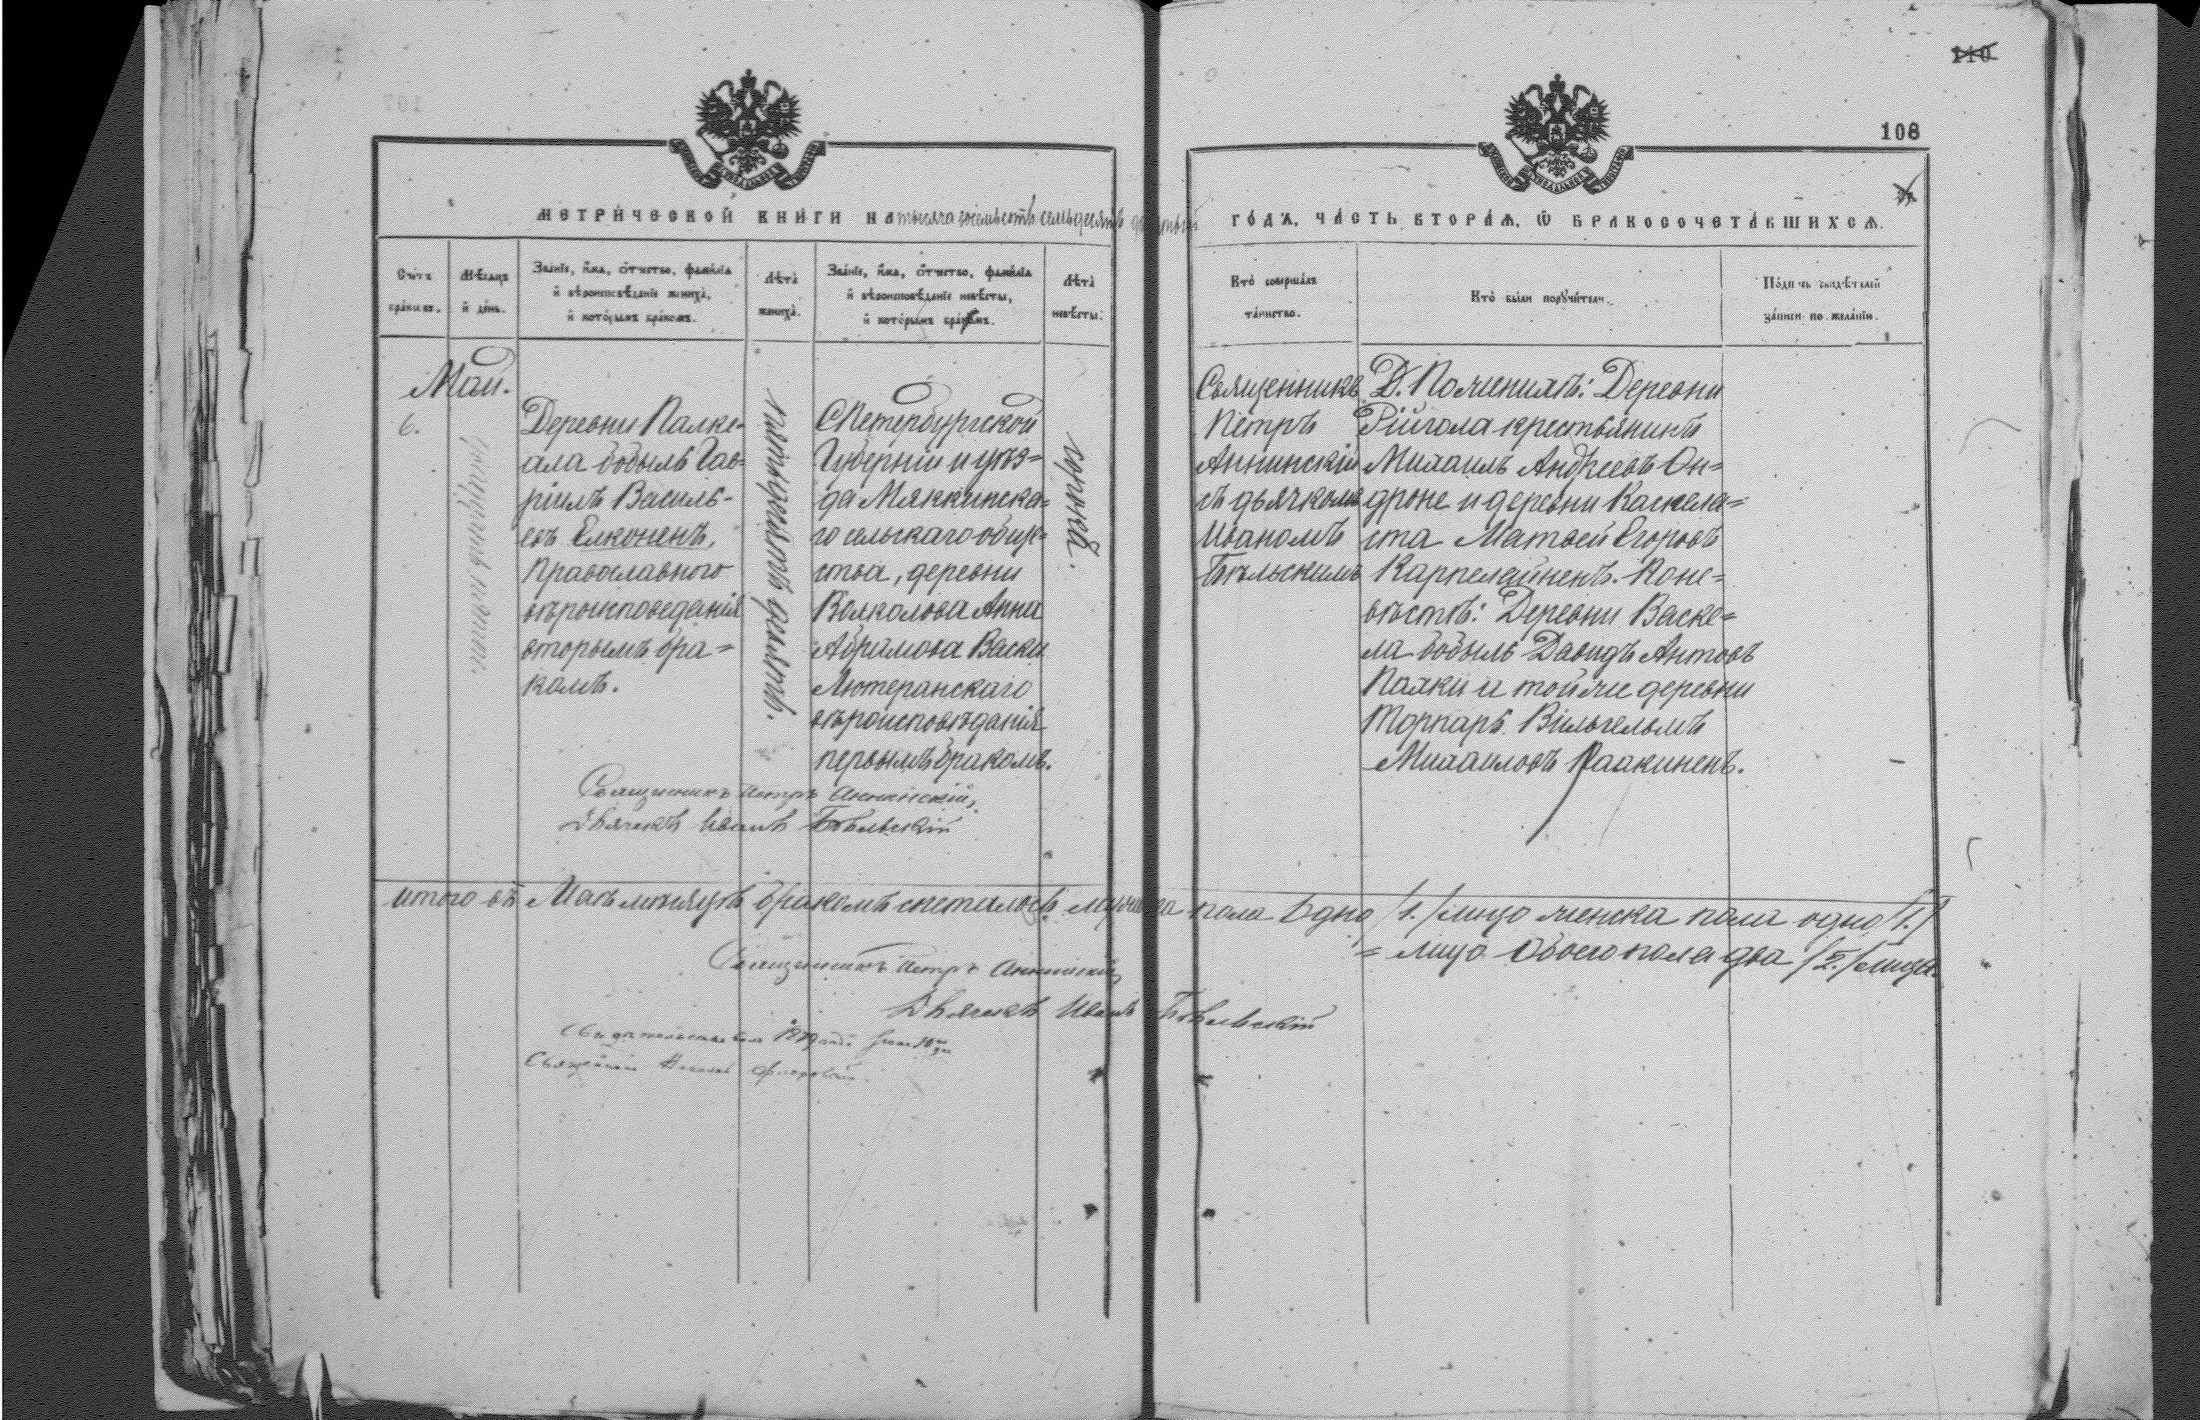 110
108
МЕТРИ́ЧЕСКОЙ КНИ́ГИ НА тысяча восемьсотъ семьдесятъ
ГО́ДЪ, ЧА́СТЬ ВТОРА́Ѧ, Ѡ҆ БРАКОСОЧЕТА́ВШИХСѦ.
Сче́тъ
бра́ковъ.
Мѣ́сѧцъ
и҆ де́нь.
Зва́нїе, и҆́мѧ, ѻ҆́тчество, фами́лїѧ
и҆ вѣроисповѣ́данїе жениха̀,
и҆ кото́рымъ бра́комъ.
Лѣта̀
жениха̀.
Зва́нїе, и҆́мѧ, ѻ҆́тчество, фами́лїѧ
и҆ вѣроисповѣ́данїе невѣ́сты,
и҆ кото́рымъ бра́комъ.
Лѣта̀
невѣ́сты.
Кто̀ соверша́лъ
та́инство.
Кто̀ бы́ли порꙋчи́тели.
По́дпись свидѣ́телей
за́писи по жела́нїю.
Май.
6.
Деревни Палке-
ала бобыль Гав-
ріилъ Василь-
евъ Елконенъ,
Православнаго
вѣроисповеданія
вторымъ бра=
комъ.
тридцать девять.
СПетербургской
Губерніи и уѣз=
да Мяккинска-
го сельскаго обще-
ства, деревни
Волколова Анна
Абрамова Васки
Лютеранскаго
вѣроисповѣданія
первымъ бракомъ.
сорокъ.
Священникъ
Петръ
Аннинскій
съ дьячкомъ
Иваномъ
Бѣльскимъ
По женихѣ: Деревни
Рійгола крестьянинъ
Михаилъ Андреевъ Он=
дроне и деревни Каскела=
ста Матвей Егоровъ
Карпелайненъ. По не=
вѣстѣ: Деревни Васке=
ла бобыль Давидъ Антовъ
Паяки и той же деревни
Торпарь Вильгельмъ
Михаиловъ Раакиненъ.
Священникъ Петръ Аннинскій,
Дьячекъ Иванъ Бѣльскій
Итого въ Маѣ мѣсяцѣ бракомъ сочеталось мужска пола одно /1./ лицо женска пола одно /1./
= лицо обоего пола два /2./ лица.
Священникъ Петръ Аннинскій,
Дьячекъ Иванъ Бѣльскій
Священникъ